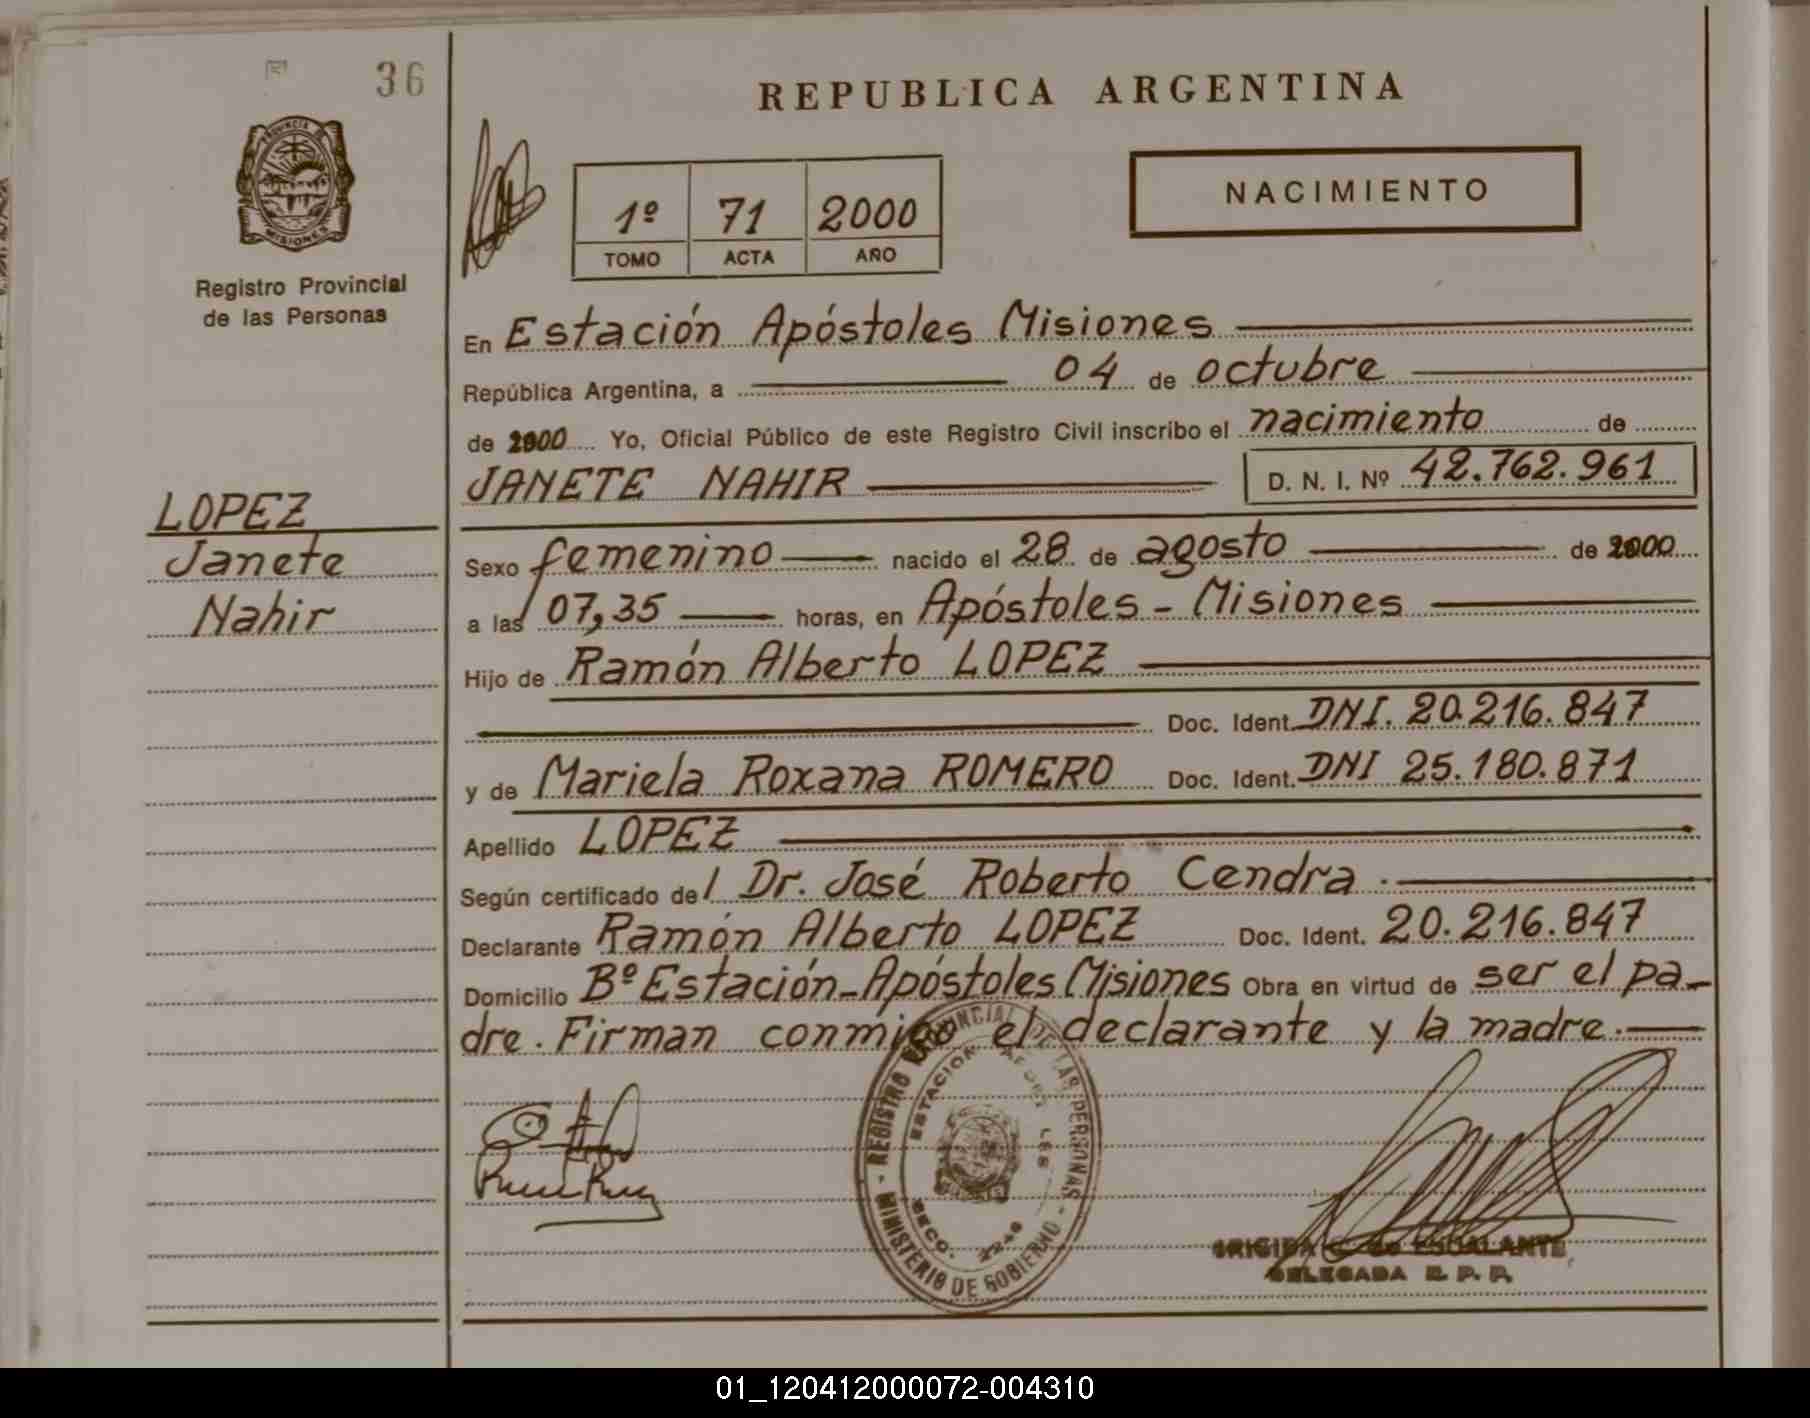 36
REPUBLICA ARGENTINA
PROVINCIA DE
MISIONES
Registro Provincial
de las Personas
1º 71 2000
TOMO ACTA AÑO
NACIMIENTO
En Estación Apóstoles Misiones
República Argentina, a 04 de octubre
de 2000 Yo, Oficial Público de este Registro Civil inscribo el nacimiento de
JANETE NAHIR D. N. I. Nº 42.762.961
LOPEZ
Janete
Nahir
Sexo femenino nacido el 28 de agosto de 2000
a las 07,35 horas, en Apóstoles - Misiones
Hijo de Ramón Alberto LOPEZ
Doc. Ident. DNI. 20.216.847
y de Mariela Roxana ROMERO Doc. Ident. DNI 25.180.871
Apellido LOPEZ
Según certificado del Dr. José Roberto Cendra.
Declarante Ramón Alberto LOPEZ Doc. Ident. 20.216.847
Domicilio Bº Estación-Apóstoles Misiones Obra en virtud de ser el pa-
dre. Firman conmigo el declarante y la madre.
REGISTRO PROVINCIAL DE LAS PERSONAS - MINISTERIO DE GOBIERNO -
ESTACION APOSTOLES
SECC. 2240
ESCALANTE
DELEGADA R. P. P.
01_120412000072-004310